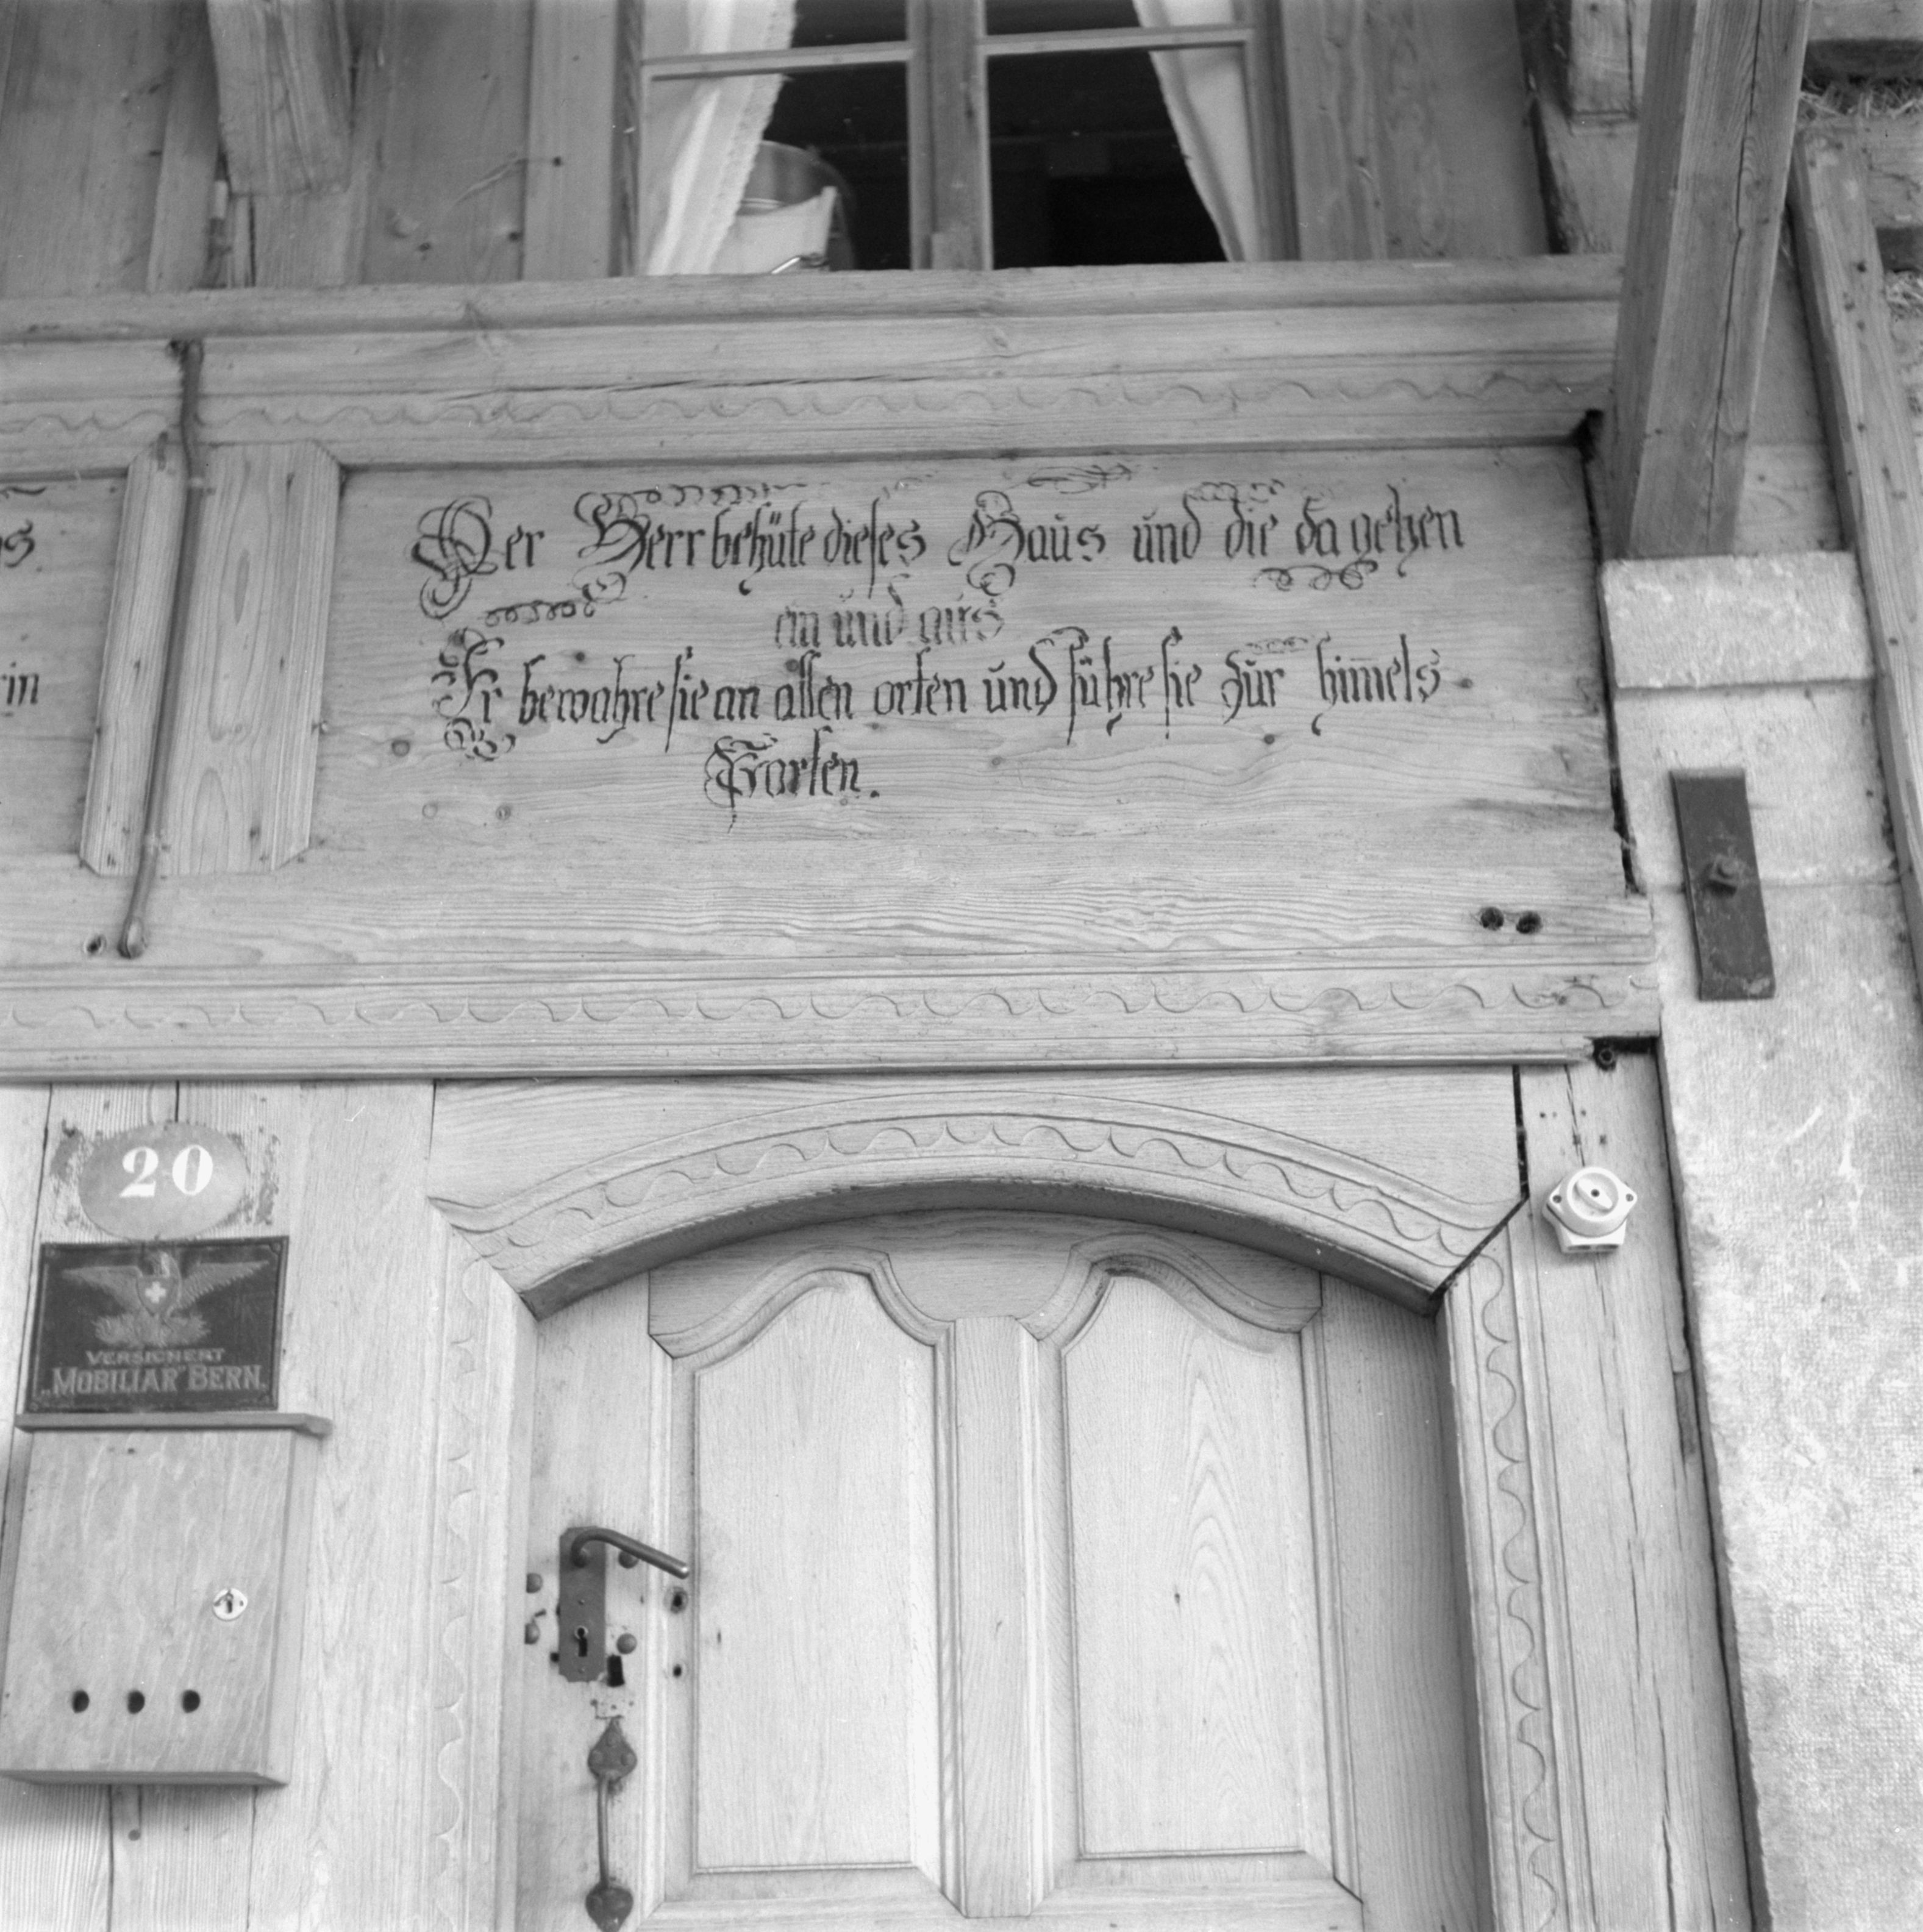 Der Herr behüte dieses Haůs ůnd die da gehen
ein ůnd aůs
Er bewahre sie an allen orten ůnd führe sie zůr him̅els
Garten.
20
VERSICHERT
„MOBILIAR" BERN.